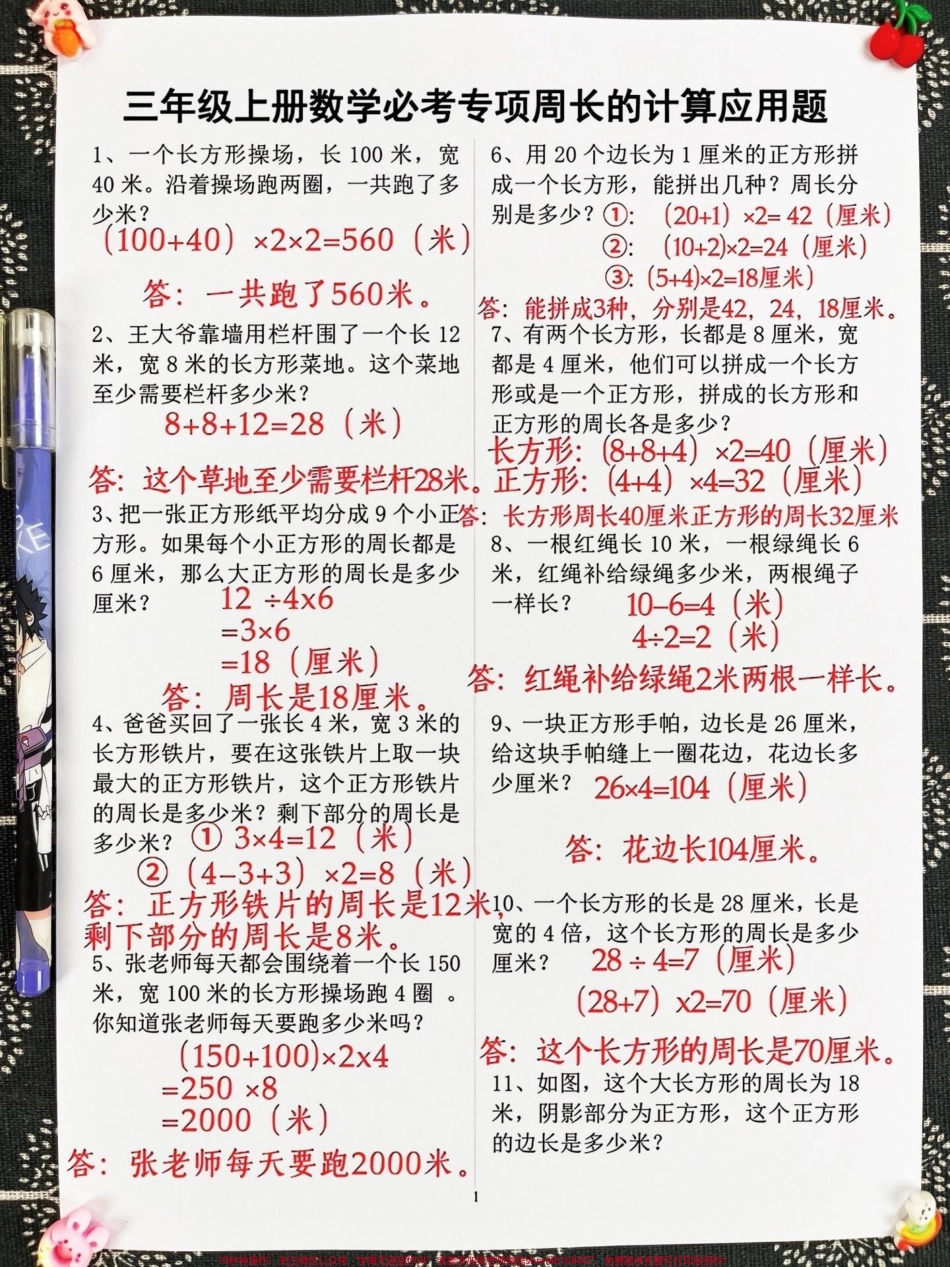 三年级上册数学必考专项周长的计算应用题
1、一个长方形操场，长 100 米，宽
40 米。沿着操场跑两圈，一共跑了多
少米？
（100+40）×2×2=560（米）
答：一共跑了560米。
2、王大爷靠墙用栏杆围了一个长 12
米，宽 8 米的长方形菜地。这个菜地
至少需要栏杆多少米？
8+8+12=28（米）
答：这个草地至少需要栏杆28米。
3、把一张正方形纸平均分成 9 个小正
方形。如果每个小正方形的周长都是
6 厘米，那么大正方形的周长是多少
厘米？
12 ÷4x6
=3×6
=18（厘米）
答：周长是18厘米。
4、爸爸买回了一张长 4 米，宽 3 米的
长方形铁片，要在这张铁片上取一块
最大的正方形铁片，这个正方形铁片
的周长是多少米？剩下部分的周长是
多少米？ ① 3×4=12（米）
②（4−3+3）×2=8（米）
答：正方形铁片的周长是12米，
剩下部分的周长是8米。
5、张老师每天都会围绕着一个长 150
米，宽 100 米的长方形操场跑 4 圈 。
你知道张老师每天要跑多少米吗？
(150+100)×2x4
=250 ×8
=2000（米）
答：张老师每天要跑2000米。
6、用 20 个边长为 1 厘米的正方形拼
成一个长方形，能拼出几种？周长分
别是多少？①：（20+1）×2= 42（厘米）
②：（10+2)×2=24（厘米）
③：(5+4)×2=18厘米）
答：能拼成3种，分别是42，24，18厘米。
7、有两个长方形，长都是 8 厘米，宽
都是 4 厘米，他们可以拼成一个长方
形或是一个正方形，拼成的长方形和
正方形的周长各是多少？
长方形：(8+8+4）×2=40（厘米）
正方形：(4+4）×4=32（厘米）
答：长方形周长40厘米正方形的周长32厘米
8、一根红绳长 10 米，一根绿绳长 6
米，红绳补给绿绳多少米，两根绳子
一样长？ 10−6=4（米）
4÷2=2（米）
答：红绳补给绿绳2米两根一样长。
9、一块正方形手帕，边长是 26 厘米，
给这块手帕缝上一圈花边，花边长多
少厘米？ 26×4=104（厘米）
答：花边长104厘米。
10、一个长方形的长是 28 厘米，长是
宽的 4 倍，这个长方形的周长是多少
厘米？ 28 ÷ 4=7（厘米）
（28+7）x2=70（厘米）
答：这个长方形的周长是70厘米。
11、如图，这个大长方形的周长为 18
米，阴影部分为正方形，这个正方形
的边长是多少米？
1